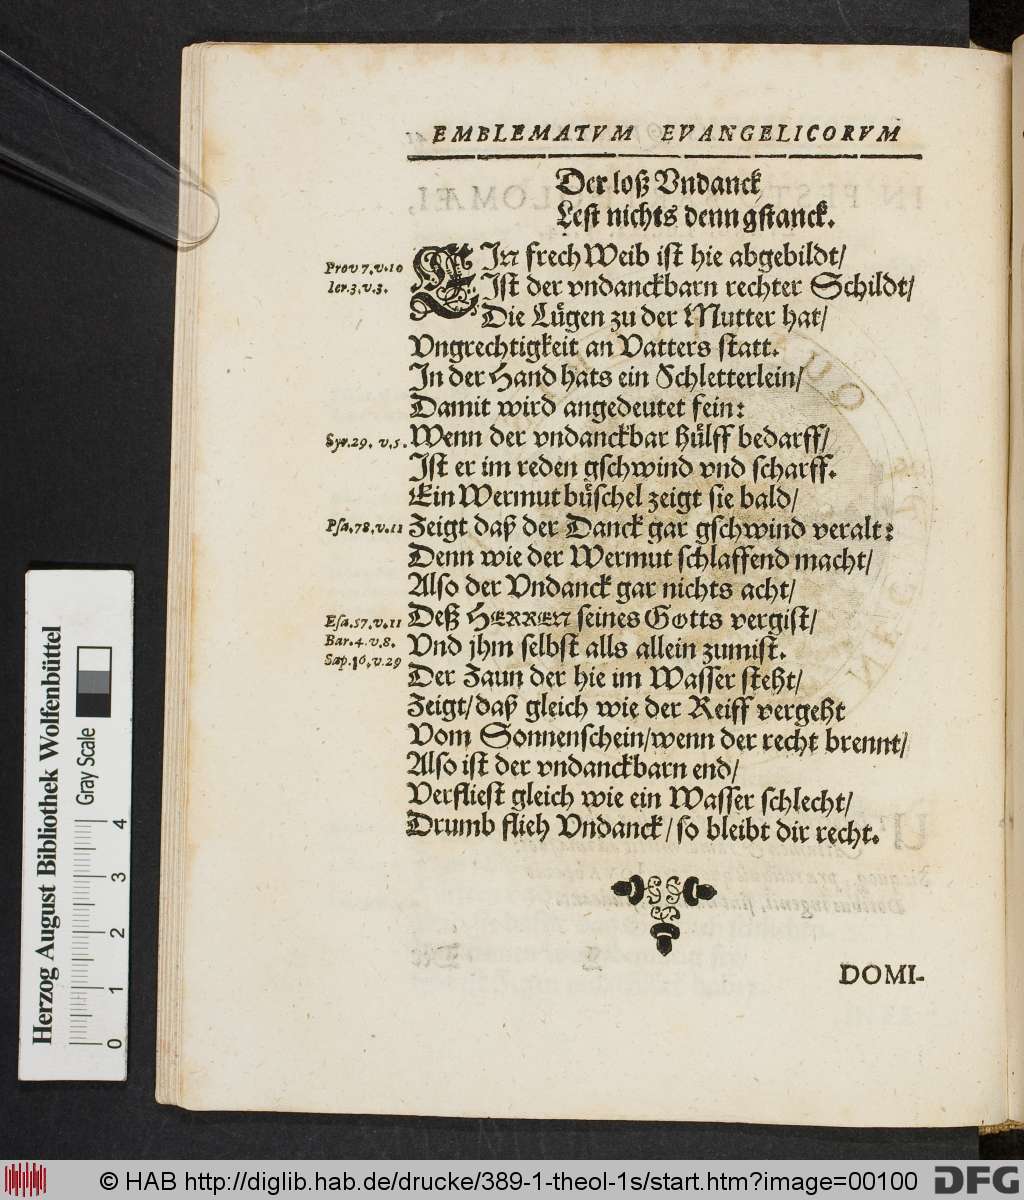 EMBLEMATVM EVANGELICORVM
Der loß Vndanck
Lest nichts denn gstanck.
EIn frech Weib ist hie abgebildt/
Prov 7. v. 10
Ist der vndanckbarn rechter Schildt/
Ier. 3. v. 3.
Die Lügen zu der Mutter hat/
Vngrechtigkeit an Vatters statt.
In der Hand hats ein Schletterlein/
Damit wird angedeutet fein:
Syr. 29. v. 5.
Wenn der vndanckbar Hülff bedarff/
Ist er im reden gschwind vnd scharff.
Ein Wermut büschel zeigt sie bald/
Psa. 78. v. 11
Zeigt daß der Danck gar gschwind veralt:
Denn wie der Wermut schlaffend macht/
Also der Vndanck gar nichts acht/
Esa. 57. v. 11
Deß HERREN seines Gotts vergist/
Bar. 4. v. 8.
Vnd jhm selbst alls allein zumist.
Sap. 16. v. 29
Der Zaun der hie im Wasser steht/
Zeigt/ daß gleich wie der Reiff vergeht
Vom Sonnenschein/ wenn der recht brennt/
Also ist der vndanckbarn end/
Verfliest gleich wie ein Wasser schlecht/
Drumb flieh Vndanck/ so bleibt dir recht.
DOMI-
Herzog August Bibliothek Wolfenbüttel
Gray Scale
0 1 2 3 4
© HAB http://diglib.hab.de/drucke/389-1-theol-1s/start.htm?image=00100
DFG